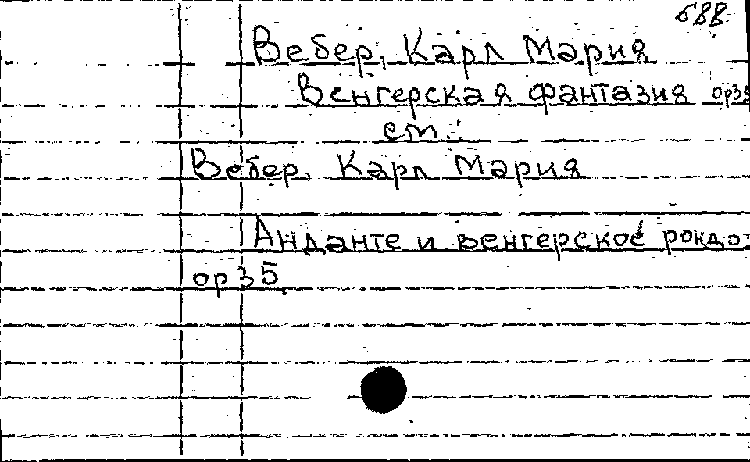 688
Вебер, Карл Мария
Венгерская фантазия ор35
см.:
Вебер, Карл Мария
Анданте и венгерское рондо-
ор35